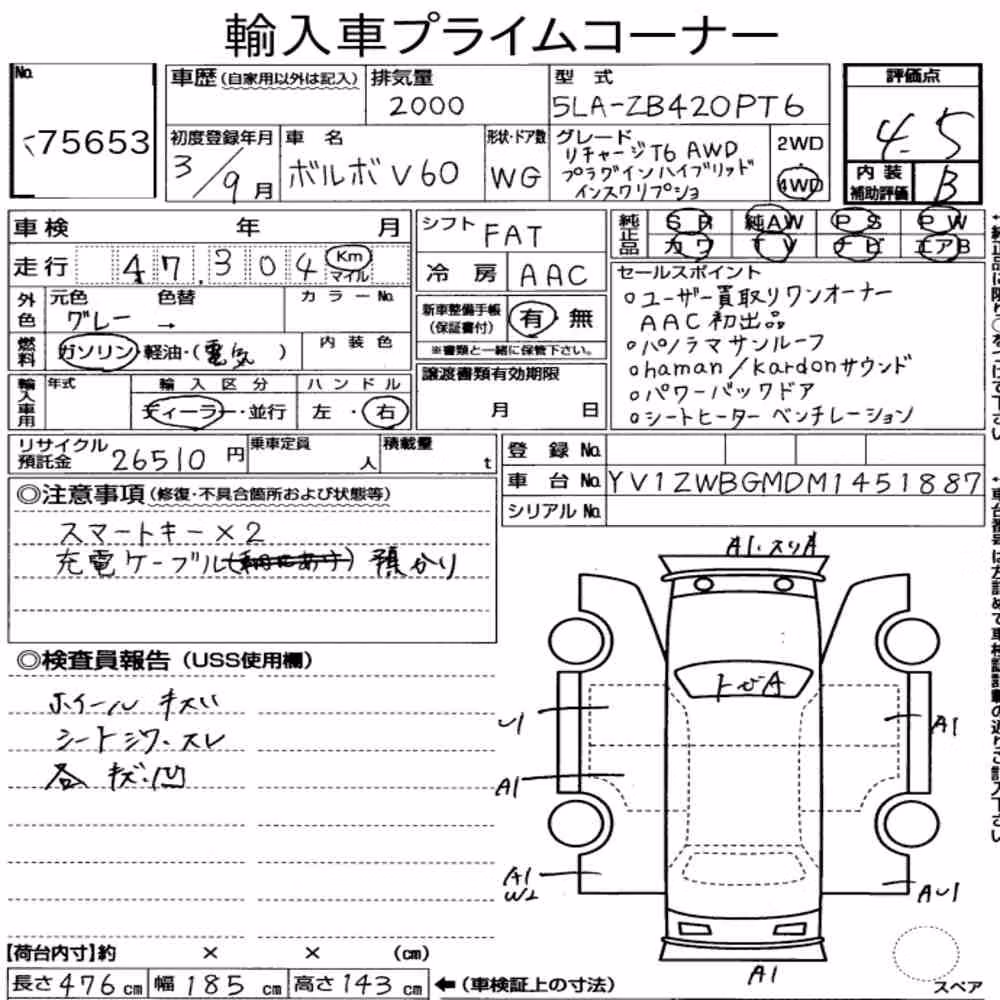 輸入車プライムコーナー
No.
75653
車歴(自家用以外は記入)
排気量
2000
型 式
5LA-ZB420PT6
評価点
4.5
内装
補助評価
B
初度登録年月
3/9月
車 名
ボルボ V60
形状・ドア数
WG
グレード
リチャージT6 AWD
プラグインハイブリッド
インスクリプショ
2WD
4WD
車検 年 月
走行 47.304 Km
マイル
外色
元色
グレー
色替
→
カラーNo.
燃料
ガソリン・軽油・(電気 )
内装色
輸入車用
年式
輸入区分
ディーラー・並行
ハンドル
左・右
シフト
FAT
冷房
AAC
新車整備手帳
(保証書付)
有・無
※書類と一緒に保管下さい。
譲渡書類有効期限
月 日
純正品
SR 純AW PS PW
カワ TV ナビ エアB
セールスポイント
○ユーザー買取りワンオーナー
AAC初出品
○パノラマサンルーフ
○haman/kardonサウンド
○パワーバックドア
○シートヒーター ベンチレーション
リサイクル
預託金
26510円
乗車定員
人
積載量
t
登録No.
車台No.
YV1ZWBGMDM1451887
シリアルNo.
◎注意事項(修復・不具合箇所および状態等)
スマートキー×2
充電ケーブル 預かり
◎検査員報告(USS使用欄)
ホイール キズい
シートシワ・スレ
各 キズ・凹
A1・スリA
トビA
U1
A1
A1
A1
W2
A1
AU1
A1
スペア
【荷台内寸】約 × × (cm)
長さ476cm 幅185cm 高さ143cm
←(車検証上の寸法)